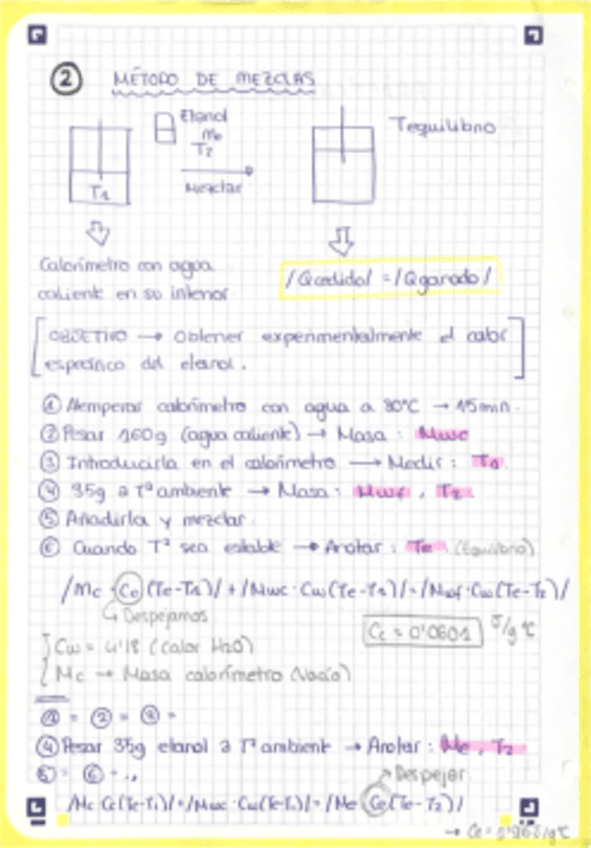 ② MÉTODO DE MEZCLAS
Etanol
Me
T2
Tequilibrio
T1
Mezclar
Calorímetro con agua
caliente en su interior
/Qcedido/ = /Qganado/
[OBJETIVO → Obtener experimentalmente el calor
específico del etanol.]
① Atemperar calorímetro con agua a 80°C → 15min.
② Pesar 160g (agua caliente) → Masa: Mwc
③ Introducirla en el calorímetro → Medir: T1
④ 35g a Tª ambiente → Masa: Mwf, T2
⑤ Añadirla y mezclar.
⑥ Cuando Tª sea estable → Anotar: Te (Equilibrio)
/Mc · Cc (Te-T1)/ + /Mwc · Cw (Te-T1)/ = /Mwf · Cw (Te-T2)/
↳ Despejamos
Cc = 0'0601 J/g °C
Cw = 4'18 (calor H2O)
Mc → Masa calorímetro (Vacío)
① = ② = ③ =
④ Pesar 35g etanol a Tª ambient → Anotar: Me, T2
⑤ = ⑥ = ..
↗ Despejar
/Mc Cc (Te-T1)/ + /Mwc · Cw (Te-T1)/ = /Me Ce (Te-T2)/
→ Ce =